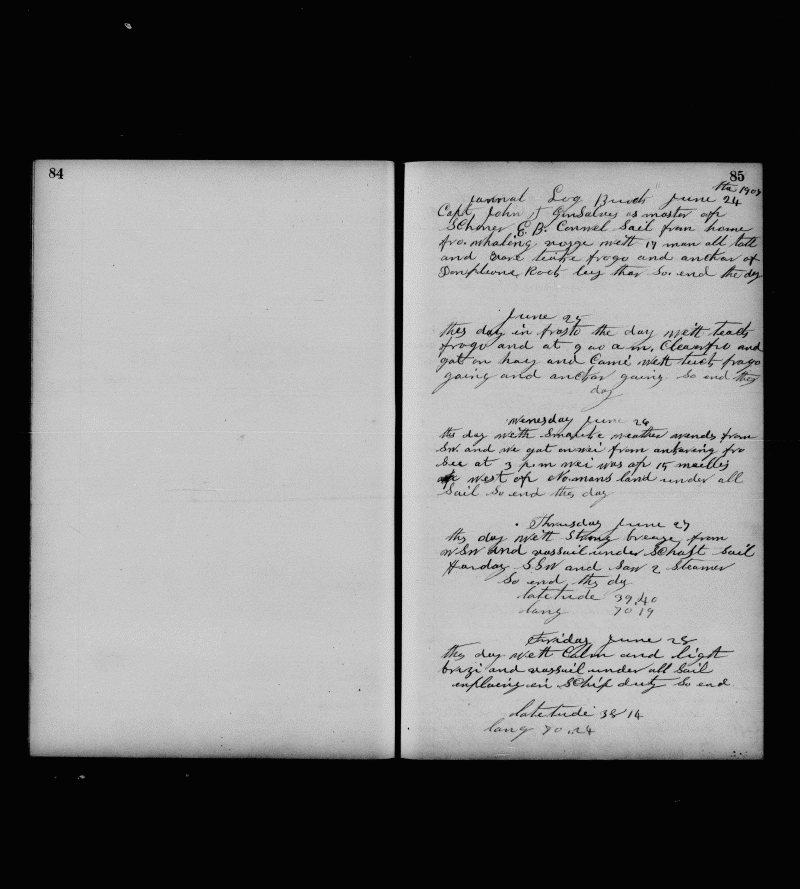 84
85
Jannal Log Buock June 24 the 1907
Capt, John J Gonsalves as master of
Schoner E. B. Conwel Sail from home
fro. whaling voyge with 17 man all tall
and Have teike frogo and anchar of
Rock ley thar So. end the day
June 25
this day in frosto the day with teack
frogo and at 9 00 a m. Clearfro and
got on hay and Came with teick frago
going and anchar going So end they
day
Wenesday June 26
ths day with Smoute weather wends from
SW. and we got onwei from ankaring fro
See at 3 p.m wei was of 15 meilles
west of Nomans land under all
Sail So end this day
Thrusday June 27
ths day with Strong breaze from
WSW and vassail under Schaft Sail
Harday SSW and Saw 2 Steamer
So end this dy
latetude 39,40
lang 70 19
Friday June 28
this day with Calm and light
brazi and vassail under all Sail
enplaing in Schip duty So end
latetude 38 14
lang 70,24